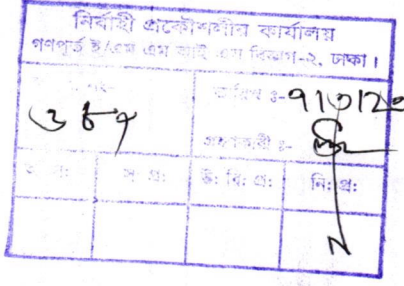 নির্বাহী প্রকৌশলীর কার্যালয়
গণপূর্ত ই/এম এম আই এস বিভাগ-২, ঢাকা।
তারিখ ঃ- ৭/৩/২০
৩৮৭
গ্রহণকারী ঃ-
স: প্র: উ: বি: প্র: নি: প্র: